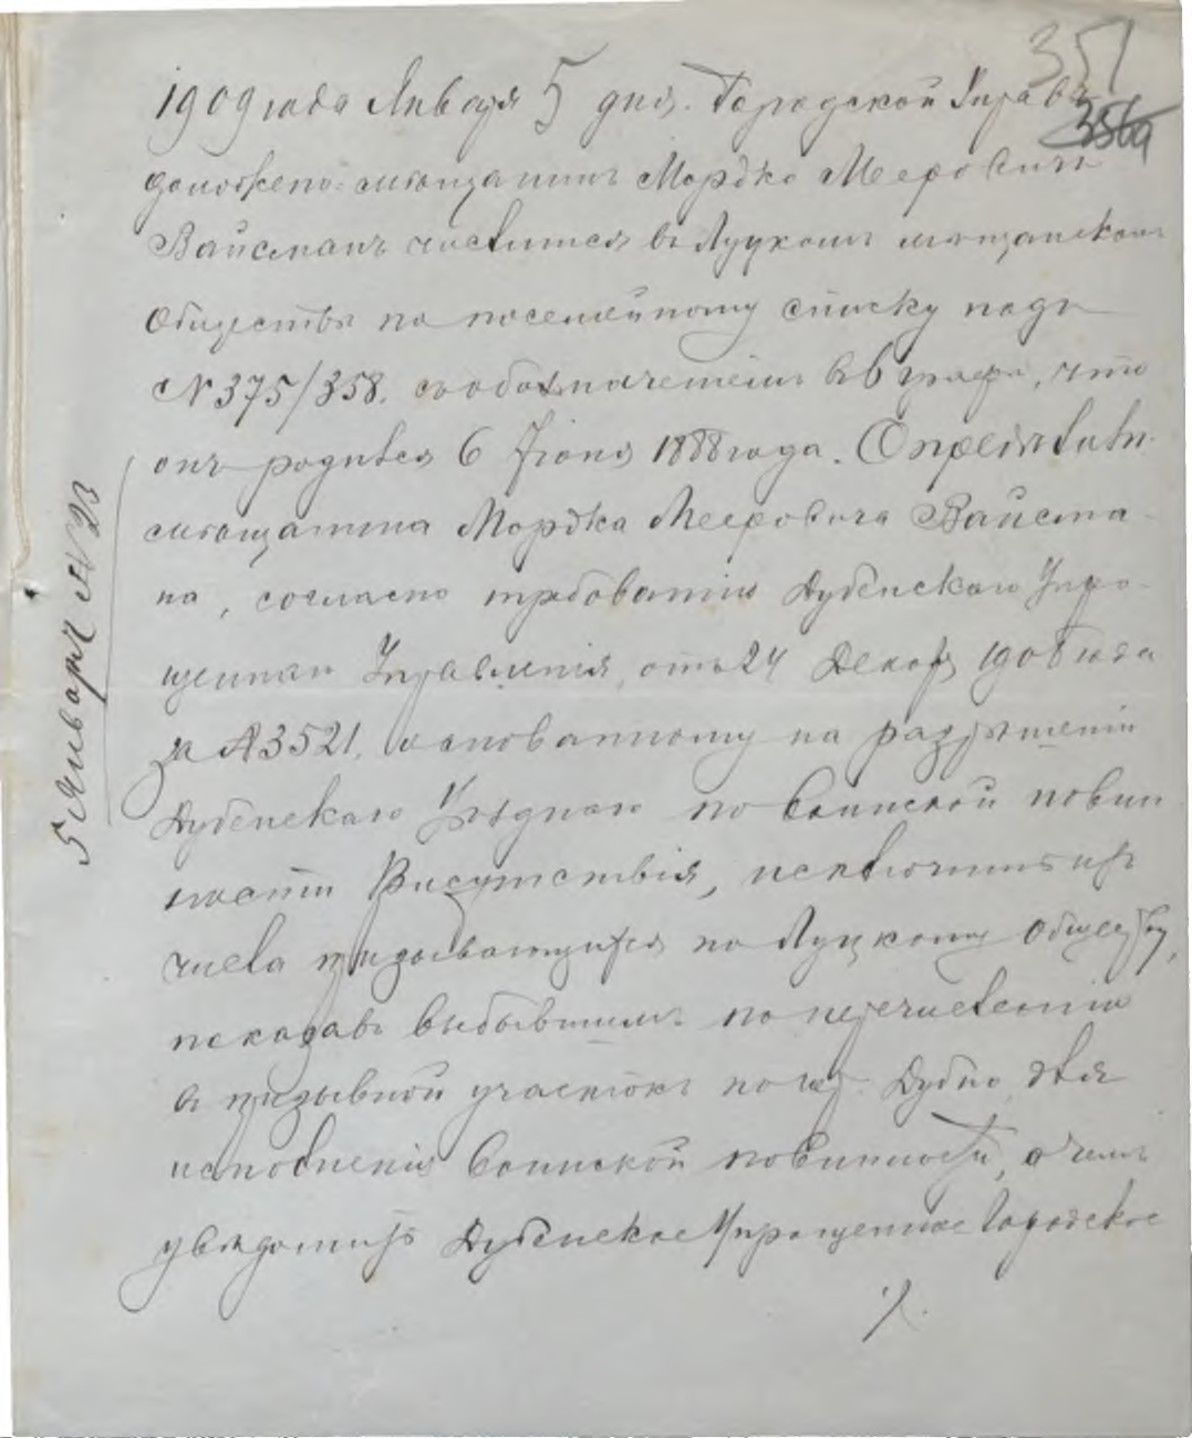 351
356а
1909 года Января 5 дня. Городской Управѣ
доложено: мѣщанинъ Мордко Мееровичъ
Вайсманъ числится въ Луцкомъ мѣщанскомъ
Обществѣ по посемейному списку подъ
№ 375/358. съ обозначеніемъ въ 6 графѣ, что
онъ родился 6 Іюня 1888 года. Опредѣлили:
мѣщанина Мордка Мееровича Вайсма-
на, согласно требованію Дубенскаго Упро-
щеннаго Управленія, отъ 24 Декабря 1908 года
за № 3521, основанному на разрѣшеніи
Дубенскаго Уѣзднаго по воинской повин
ности Присутствія, исключить изъ
числа призывающихся по Луцкому обществу,
показавъ выбывшимъ по перечисленію
въ призывной участокъ по гор. Дубно для
исполненія воинской повинности, о чемъ
увѣдомить Дубенское Упрощенное Городское
5 Января № 23